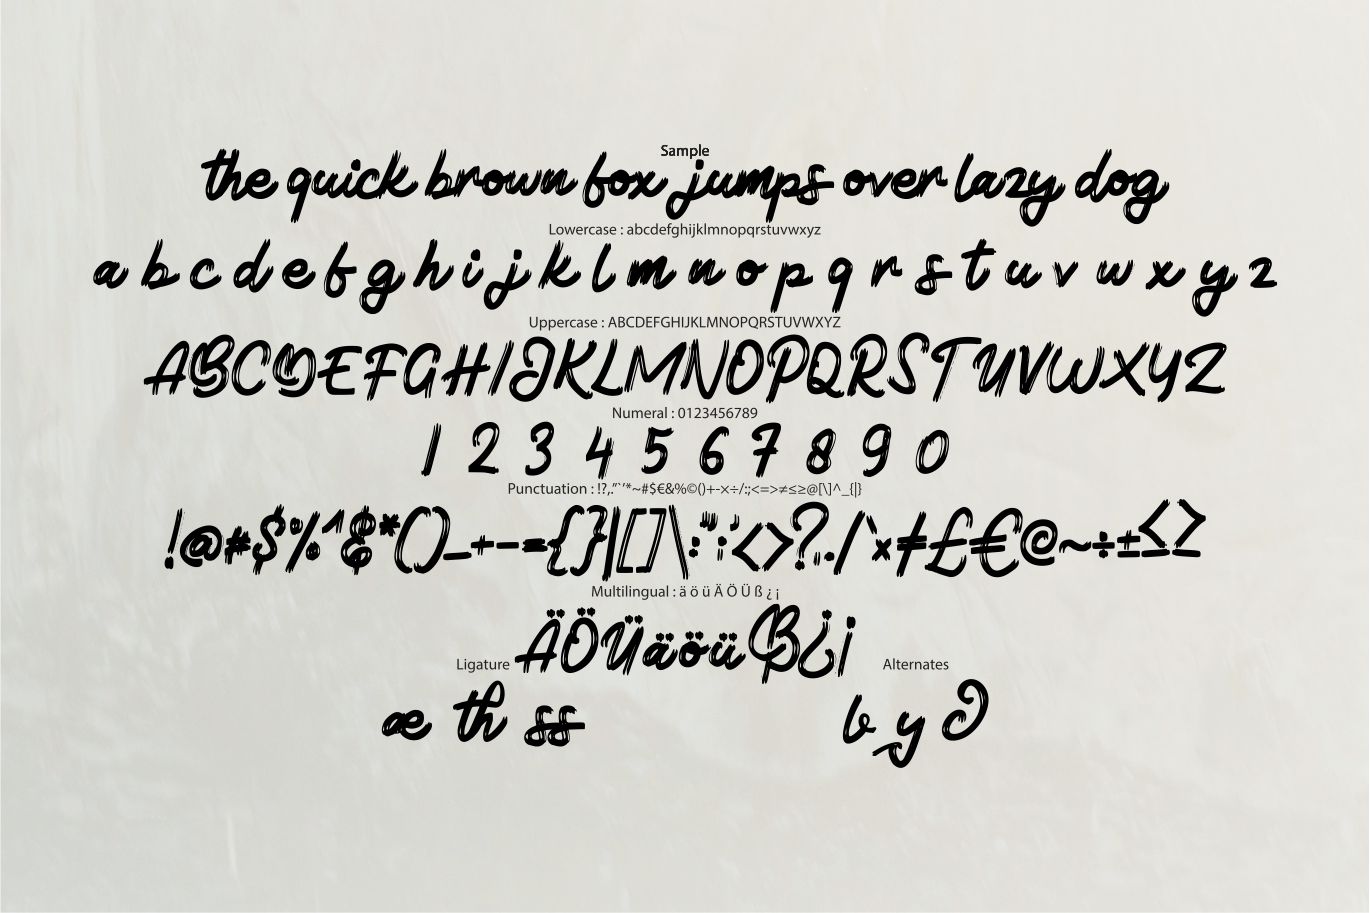 Sample
the quick brown fox jumps over lazy dog
Lowercase : abcdefghijklmnopqrstuvwxyz
a b c d e f g h i j k l m n o p q r s t u v w x y z
Uppercase : ABCDEFGHIJKLMNOPQRSTUVWXYZ
ABCDEFGHIJKLMNOPQRSTUVWXYZ
Numeral : 0123456789
1 2 3 4 5 6 7 8 9 0
Punctuation : !?,.”`’*~#$€&%©()+-×÷/:;<=>≠≤≥@[\]^_{|}
!@#$%^&*()_+-={}|[]\:";'<>?,./`×≠£€@~÷±≤≥
Multilingual : ä ö ü Ä Ö Ü ß ¿ ¡
ÄÖÜäöüß¿¡
Ligature
Alternates
æ th ss
b y D